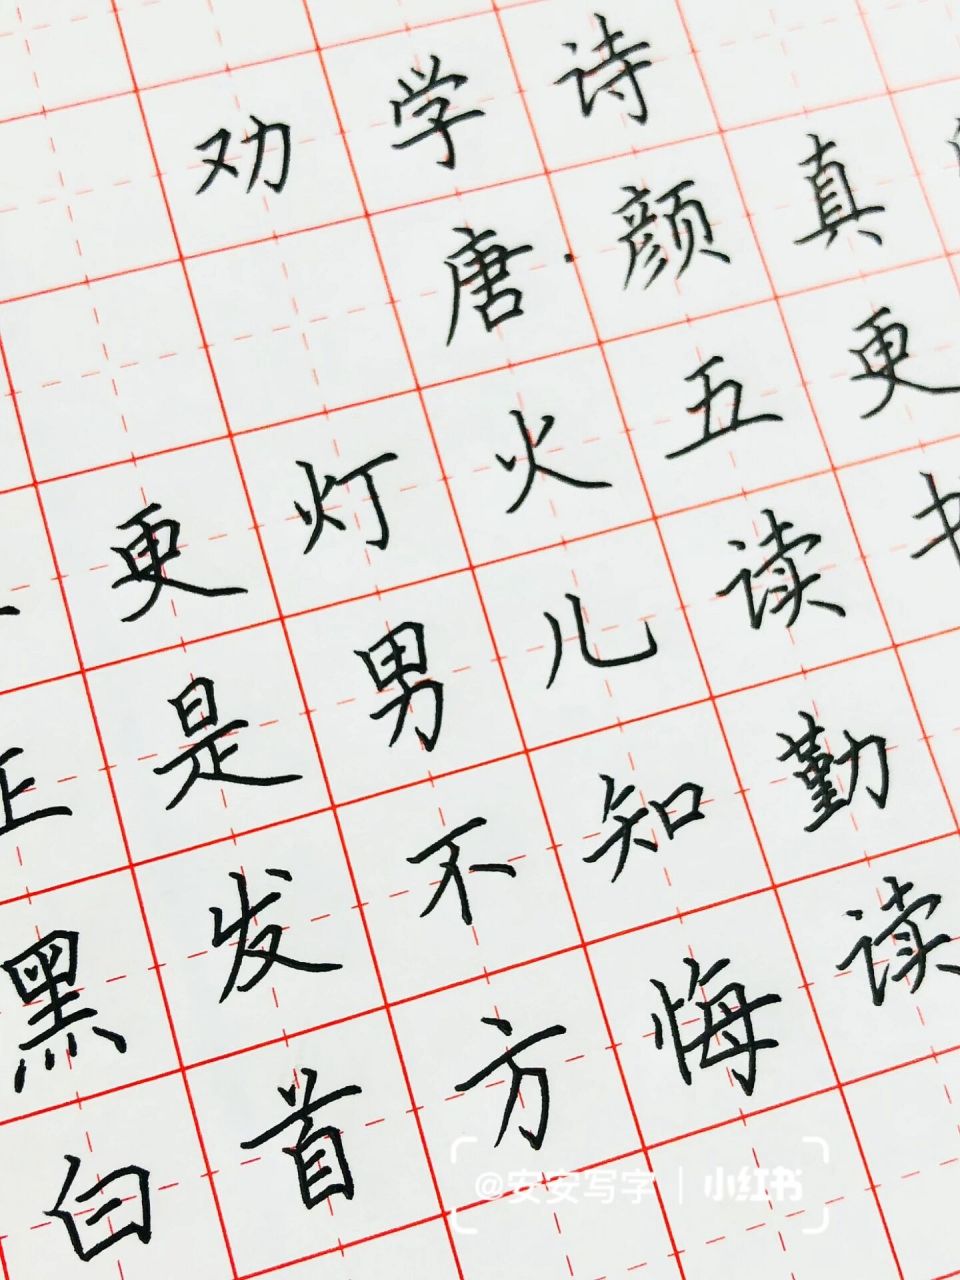 劝学诗
唐·颜真
更灯火五更
正是男儿读书
黑发不知勤
白首方悔读
@安安写字 | 小红书